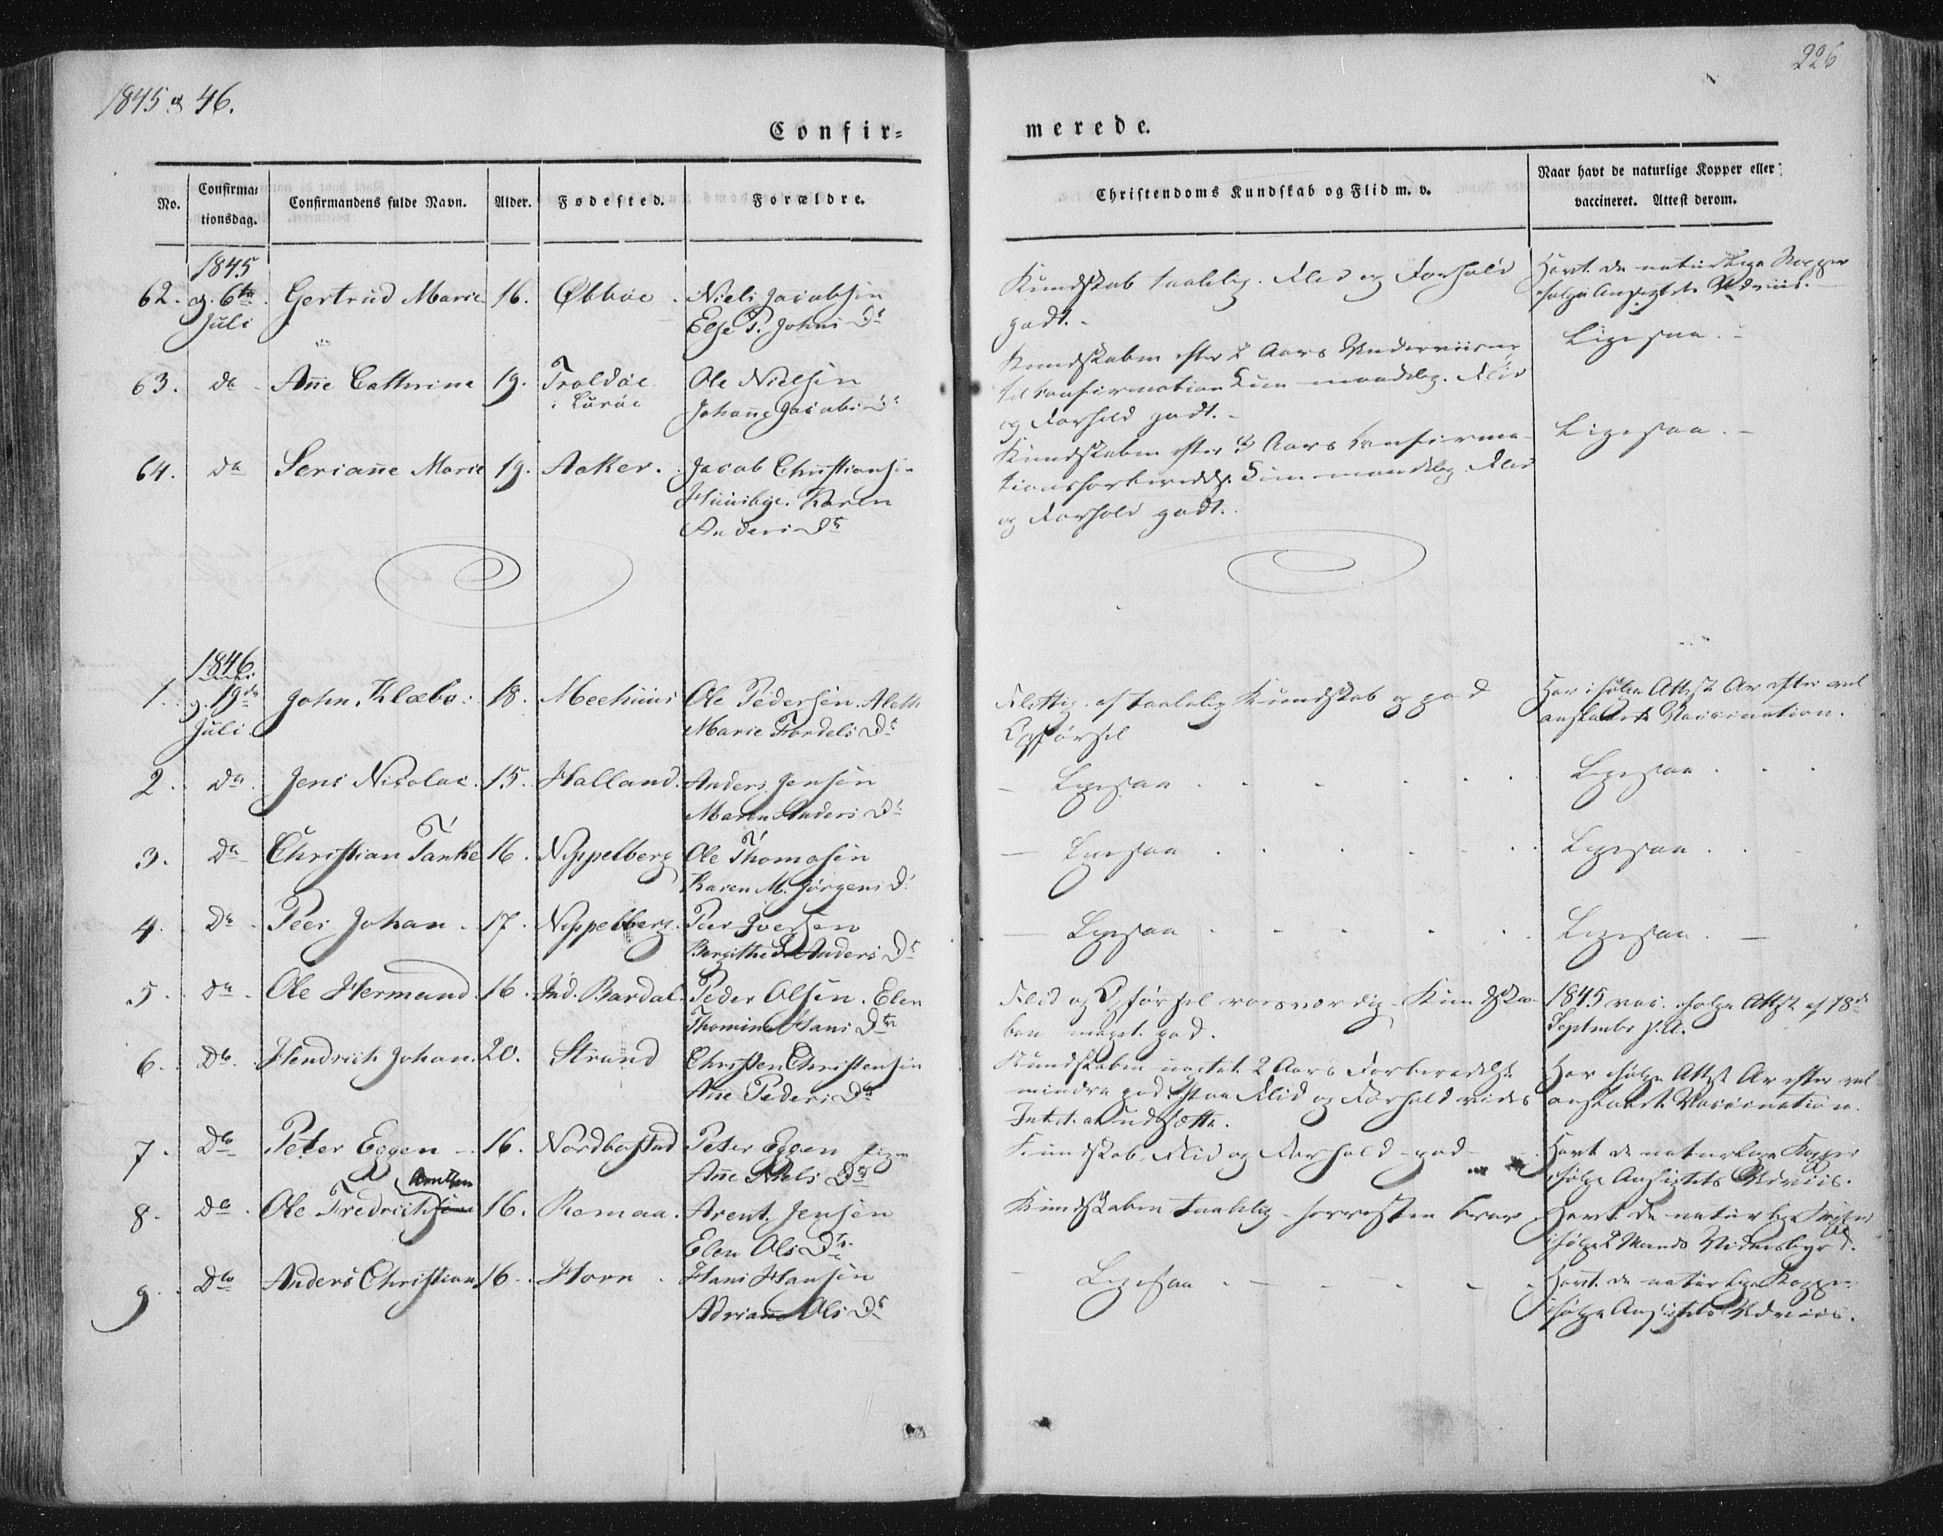 1845 & 46.
226
Confir=
merede.
No.
Confirma=
tionsdag.
Confirmandens fulde Navn.
Alder.
Fødested.
Forældre.
Christendoms Kundskab og Flid m. v.
Naar havt de naturlige Kopper eller
vaccineret. Attest derom.
1845
62. 6te Gertrud Marie 16. Øbbøe. Niels Jacobsen
Juli Else P. Johns Dr
Kundskab taalelig. Flid og Forhold
godt.
Havt de naturlige Kopper
ifølge Ansigtets Udviis.
63. do Añe Cathrine 19. Troldøe Ole Nielsen
i Lurøe Johañe Jacobs Dr
Kundskaben efter 2 Aars Underviisning
til Confirmation kun maadelig. Flid
og Forhold godt.
Ligesaa.
64. do Seriañe Marie 19. Aaker. Jacob Christiansen
Huusbye. Karen
Anders Dr
Kundskaben efter 3 Aars Confirma-
tionsforberedelse kun maadelig Flid
og Forhold godt.
Ligesaa.
1846.
1. 19de John Klæbo. 18. Meehuus Ole Pedersen. Aleth
Juli. Marie Tordels Dr
Flittig, af taalelig Kundskab og god
Opførsel
Har ifølge Attest Ar efter vel
anstaaet Vaccination.
2. do Jens Nicolai. 15. Halland. Anders Jensen
Maren Anders Dr
Ligesaa
Ligesaa
3. do Christian Tanke 16. Nippelberg Ole Thomasen
Karen M. Jørgens Dr
Ligesaa
Ligesaa
4. do Peer Johan. 17. Nippelberg. Peer Iversen
Bergithe Anders Dr
Ligesaa
Ligesaa.
5. do Ole Hermand 16. Ind. Bardal Peder Olsen. Elen
Thomine Hans Dtr
Flid og Opførsel roesværdig. Kundska-
ben meget god.
1845 vac. ifølge Attest af 18de
September s. A.
6. do Hendrich Johan. 20. Strand Christen Christensen
Añe Peders Dr
Kundskaben uagtet 2 Aars Forberedelse
mindre god. Paa Flid og Forhold vides
Intet at udsætte.
Har ifølge Attest Ar efter vel
anstaaet Vaccination.
7. do Peter Eggen 16. Nordbostad Peter Eggen
Añe Niels Dtr
Kundskab, Flid og Forhold god
Havt de naturlige Kopper
ifølge Ansigtets Udviis.
Arntsen
8. do Ole Fredrich 16. Remaa. Arent Jensen
Elen Ols Dtr
Kundskaben taalelig forresten brav
Havt de naturlige Kopper
ifølge 2 Mænds Vidnesbyrd.
9. do Anders Christian 16. Horn. Hans Hansen
Adriane Ols Dr
Ligesaa
Havt de naturlige Kopper
ifølge Ansigtets Udviis.